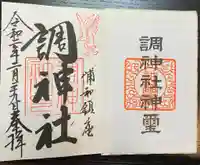 浦和鎮座
調神社
令和二年十一月二十九日奉拝
調神社神璽